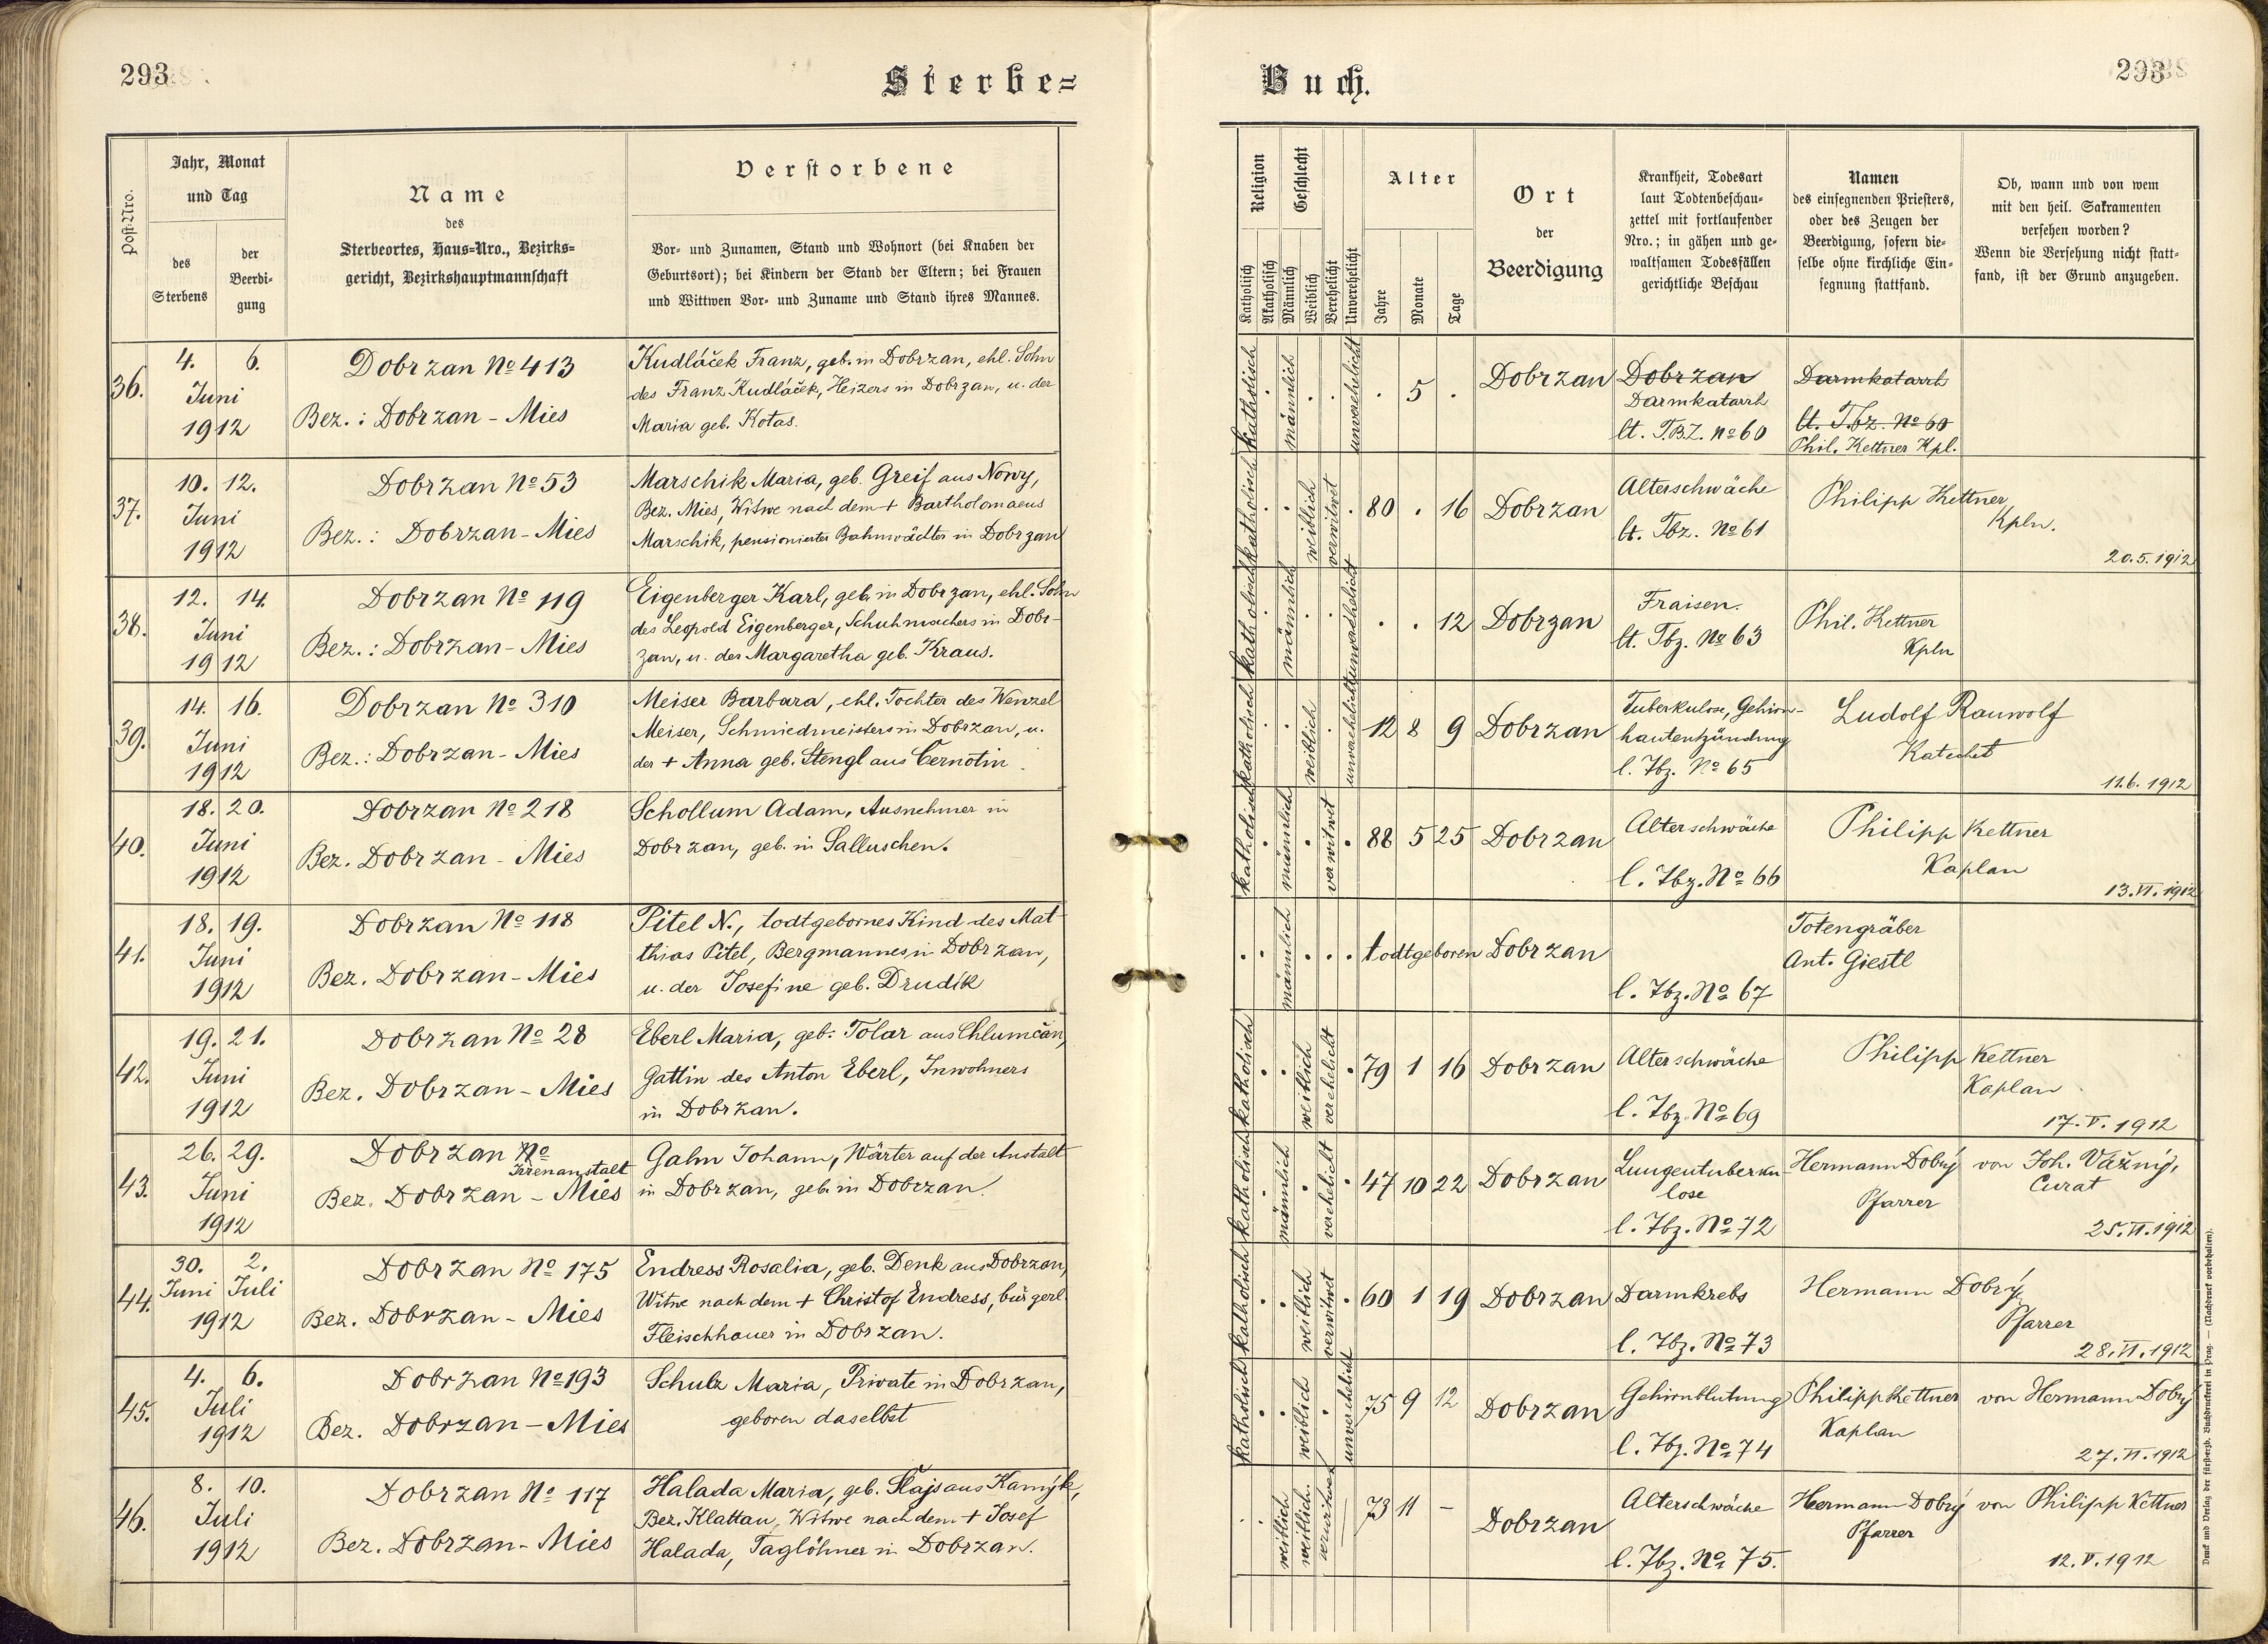 293
Sterbe=
Buch.
293
Post-Nro.
Jahr, Monat
und Tag
des
Sterbens
der
Beerdi-
gung
Name
des
Sterbeortes, Haus=Nro., Bezirks=
gericht, Bezirkshauptmannschaft
Verstorbene
Vor- und Zunamen, Stand und Wohnort (bei Knaben der
Geburtsort); bei Kindern der Stand der Eltern; bei Frauen
und Wittwen Vor- und Zuname und Stand ihres Mannes.
Religion
Katholisch
Akatholisch
Geschlecht
Männlich
Weiblich
Verehelicht
Unverehelicht
Alter
Jahre
Monate
Tage
Ort
der
Beerdigung
Krankheit, Todesart
laut Todtenbeschau-
zettel mit fortlaufender
Nro.; in gähen und ge-
waltsamen Todesfällen
gerichtliche Beschau
Namen
des einsegnenden Priesters,
oder des Zeugen der
Beerdigung, sofern die-
selbe ohne kirchliche Ein-
segnung stattfand.
Ob, wann und von wem
mit den heil. Sakramenten
versehen worden?
Wenn die Versehung nicht statt-
fand, ist der Grund anzugeben.
36.
4. 6.
Juni
1912
Dobrzan No 413
Bez.: Dobrzan - Mies
Kudláček Franz, geb. in Dobrzan, ehl. Sohn
des Franz Kudláček, Heizers in Dobrzan, u. der
Maria geb. Kotas.
katholisch
männlich
unverehelicht
. 5 .
Dobrzan
Dobrzan
Darmkatarrh
lt. T.B.Z. No 60
Darmkatarrh
lt. Tbz. No 60
Phil. Kettner Kpl.
37.
10. 12.
Juni
1912
Dobrzan No 53
Bez.: Dobrzan - Mies
Marschik Maria, geb. Greif aus Nowy,
Bez. Mies, Witwe nach dem + Bartholomaeus
Marschik, pensionierter Bahnwächter in Dobrzan
katholisch
weiblich
verwitwet
80 . 16
Dobrzan
Alterschwäche
lt. Tbz. No 61
Philipp Kettner
Kpln.
20.5.1912
38.
12. 14.
Juni
1912
Dobrzan No 119
Bez.: Dobrzan - Mies
Eigenberger Karl, geb. in Dobrzan, ehl. Sohn
des Leopold Eigenberger, Schuhmachers in Dobr-
zan, u. der Margaretha geb. Kraus.
katholisch
männlich
unverehelicht
. . 12
Dobrzan
Fraisen.
lt. Tbz. No 63
Phil. Kettner
Kpln
39.
14. 16.
Juni
1912
Dobrzan No 310
Bez.: Dobrzan - Mies
Meiser Barbara, ehl. Tochter des Wenzel
Meiser, Schmiedmeisters in Dobrzan, u.
der + Anna geb. Stengl aus Černotin
katholisch
weiblich
unverehelicht
12 8 9
Dobrzan
Tuberkulose, Gehirn-
hautentzündung
l. Tbz. No 65
Ludolf Rauwolf
Katechet
11.6.1912
40.
18. 20.
Juni
1912
Dobrzan No 218
Bez. Dobrzan - Mies
Schollum Adam, Ausnehmer in
Dobrzan, geb. in Salluschen.
katholisch
männlich
verwitwet
88 5 25
Dobrzan
Alterschwäche
l. Tbz. No 66
Philipp Kettner
Kaplan
13.VI.1912
41.
18. 19.
Juni
1912
Dobrzan No 118
Bez. Dobrzan - Mies
Pitel N., todtgebornes Kind des Mat
thias Pitel, Bergmannes in Dobrzan,
u. der Josefine geb. Drudík
männlich
todtgeboren
Dobrzan
l. Tbz. No 67
Totengräber
Ant. Giestl
42.
19. 21.
Juni
1912
Dobrzan No 28
Bez. Dobrzan - Mies
Eberl Maria, geb. Tolar aus Chlumčan,
Gattin des Anton Eberl, Inwohners
in Dobrzan.
katholisch
weiblich
verehelicht
79 1 16
Dobrzan
Alterschwäche
l. Tbz. No 69
Philipp Kettner
Kaplan
17.V.1912
43.
26. 29.
Juni
1912
Dobrzan No
Irrenanstalt
Bez. Dobrzan - Mies
Galm Johann, Wärter auf der Anstalt
in Dobrzan, geb. in Dobrzan.
katholisch
männlich
verehelicht
47 10 22
Dobrzan
Lungentuberku-
lose
l. Tbz. No 72
Hermann Dobrý
Pfarrer
von Joh. Vážný,
Curat
25.VI.1912
44.
30. 2.
Juni Juli
1912
Dobrzan No 175
Bez. Dobrzan - Mies
Endress Rosalia, geb. Denk aus Dobrzan,
Witwe nach dem + Christof Endress, bürgerl
Fleischhauer in Dobrzan.
katholisch
weiblich
verwitwet
60 1 19
Dobrzan
Darmkrebs
l. Tbz. No 73
Hermann Dobrý
Pfarrer
28.VI.1912
45.
4. 6.
Juli
1912
Dobrzan No 193
Bez. Dobrzan - Mies
Schulz Maria, Private in Dobrzan,
geboren daselbst
katholisch
weiblich
unverehelicht
75 9 12
Dobrzan
Gehirnblutung
l. Tbz. No 74
Philipp Kettner
Kaplan
von Hermann Dobrý
27.VI.1912
46.
8. 10.
Juli
1912
Dobrzan No 117
Bez. Dobrzan - Mies
Halada Maria, geb. Šlajs aus Kamýk,
Bez. Klattau, Witwe nach dem + Josef
Halada, Taglöhner in Dobrzan.
weiblich
weiblich.
verwitwet
73 11 -
Dobrzan
Alterschwäche
l. Tbz. No 75.
Hermann Dobrý
Pfarrer
von Philipp Kettner
12.V.1912
Druck und Verlag der fürsterzb. Buchdruckerei in Prag. — (Nachdruck vorbehalten).